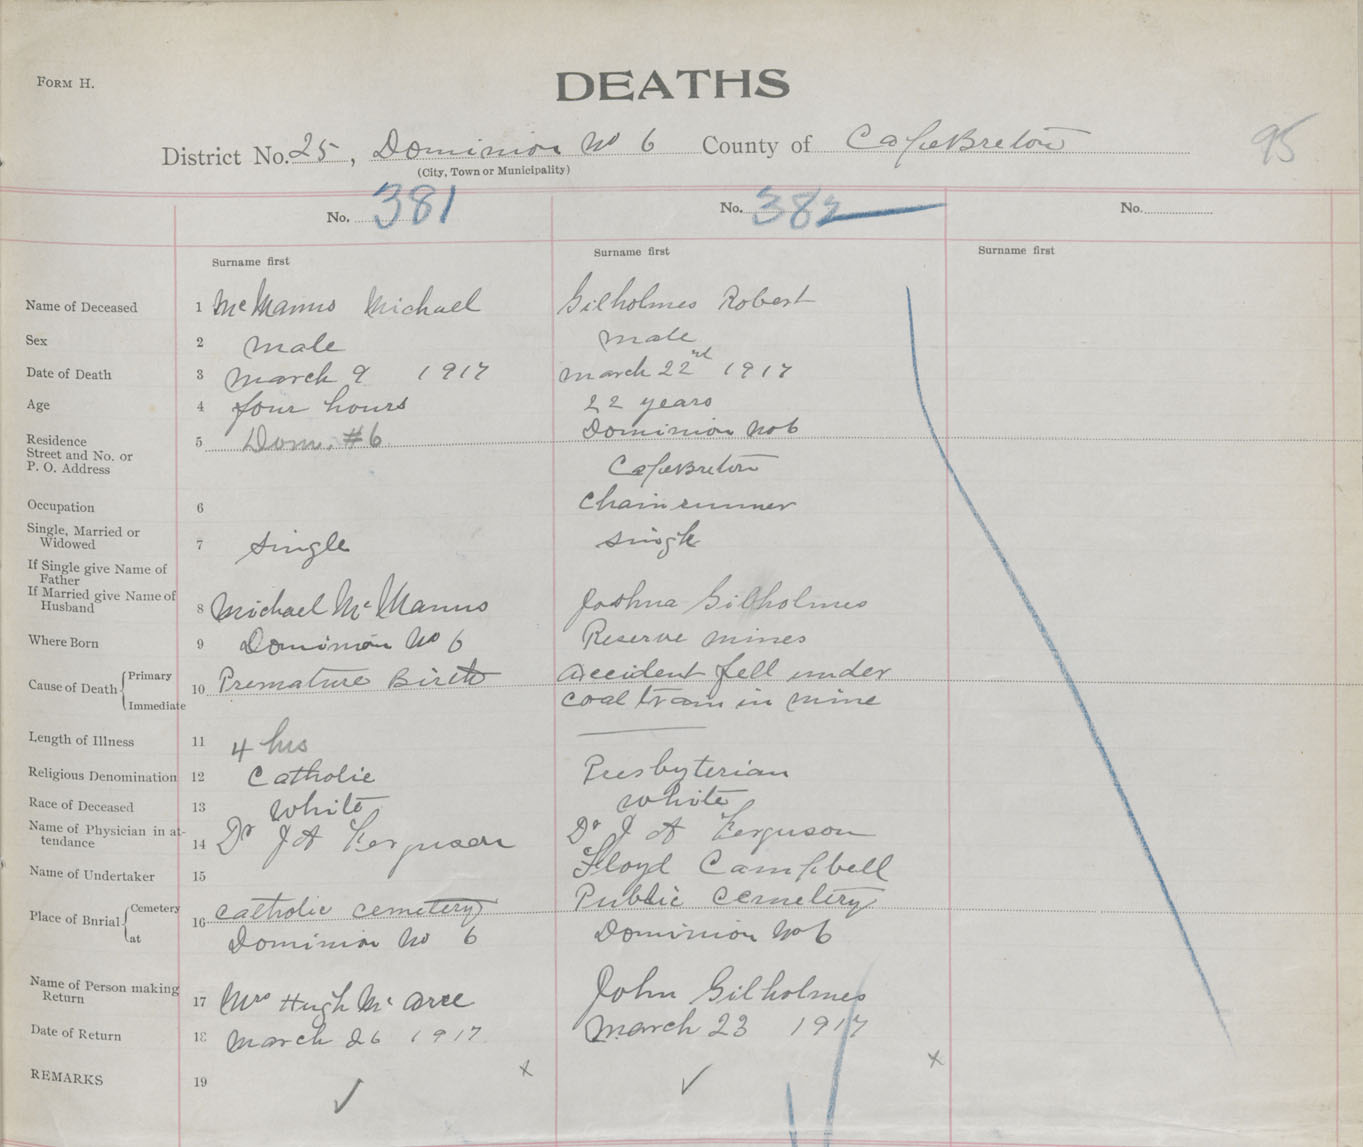 FORM H.
DEATHS
95
District No. 25, Dominion No 6 County of Cape Breton
(City, Town or Municipality)
No. 381 No. 382 No.
Surname first Surname first Surname first
Name of Deceased 1 McManus Michael Gilholmes Robert
Sex 2 male male
Date of Death 3 March 9 1917 March 22nd 1917
Age 4 four hours 22 years
Residence 5 Dom. #6 Dominion No 6
Street and No. or
P. O. Address Cape Breton
Occupation 6 Chain runner
Single, Married or
Widowed 7 single single
If Single give Name of
Father
If Married give Name of
Husband 8 Michael McManus Joshua Gilholmes
Where Born 9 Dominion No 6 Reserve mines
Cause of Death Primary 10 Premature Birth accident fell under
Immediate coal tram in mine
Length of Illness 11 4 hrs
Religious Denomination 12 Catholic Presbyterian
Race of Deceased 13 White White
Name of Physician in at-
tendance 14 Dr J A Ferguson Dr J A Ferguson
Name of Undertaker 15 Floyd Campbell
Place of Bnrial Cemetery 16 Catholic Cemetery Public Cemetery
at Dominion No 6 Dominion No 6
Name of Person making
Return 17 Mrs Hugh Mc John Gilholmes
Date of Return 18 March 26 1917 March 23 1917
REMARKS 19